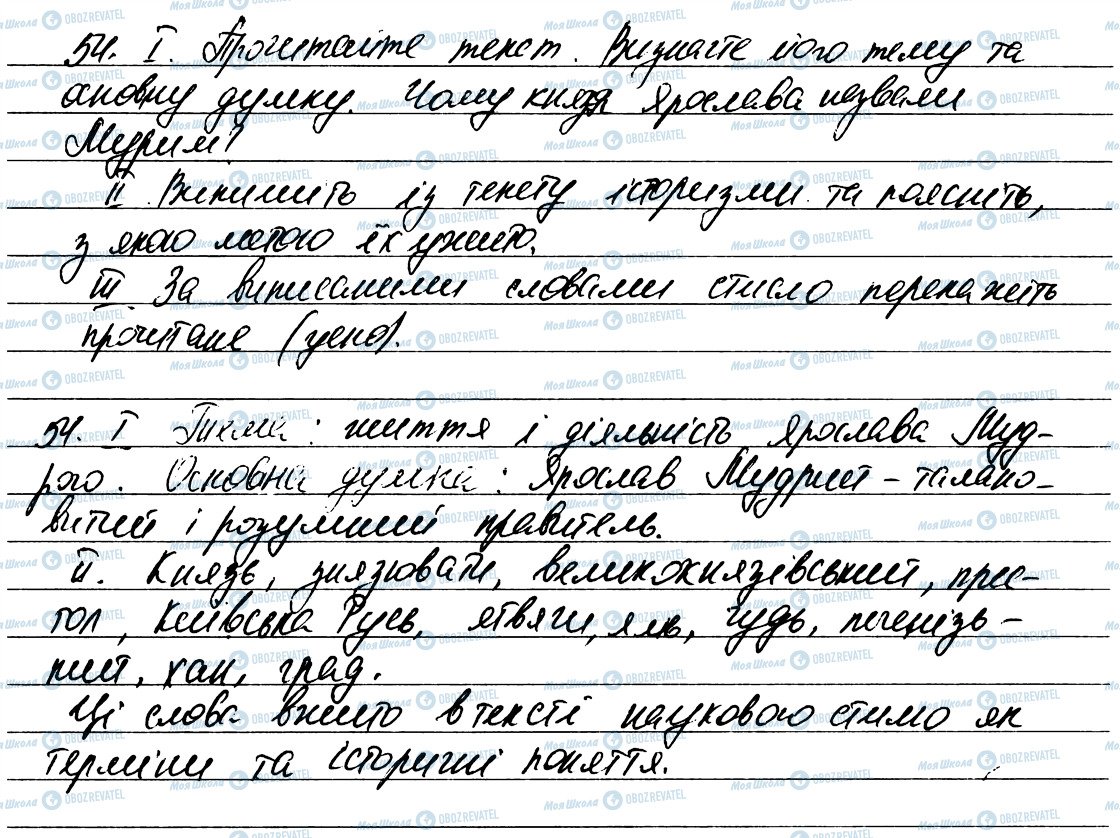 54. I. Прочитайте текст. Визначте його тему та
основну думку. Чому князя Ярослава назвали
Мудрим?
II. Випишіть із тексту історизми та поясніть,
з якою метою їх ужито.
III. За виписаними словами стисло перекажіть
прочитане (усно).
54. I Тема: життя і діяльність Ярослава Муд-
рого. Основна думка: Ярослав Мудрий – талано-
витий і розумний правитель.
II. Князь, князювати, великокнязівський, прес-
тол, Київська Русь, ятвяги, чудь, печенізь-
кий, хан, град.
Ці слова вжито в тексті наукового стилю як
терміни та історичні поняття.